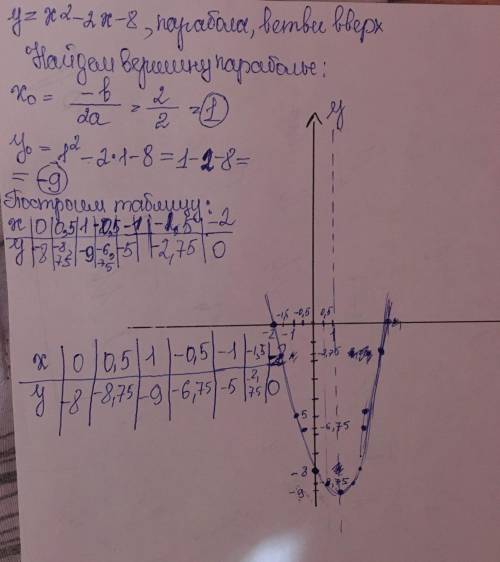 y = x² - 2x - 8, парабола, ветви вверх
Найдем вершину параболы:
x₀ = -b/2a = 2/2 = 1
y₀ = 1² - 2·1 - 8 = 1 - 2 - 8 =
= -9
Построим таблицу:
x | 0 | 0,5 | 1 | -0,5 | -1 | -1,5 | -2
y | -8 | -8,75 | -9 | -6,75 | -5 | -2,75 | 0
x | 0 | 0,5 | 1 | -0,5 | -1 | -1,5 | -2
y | -8 | -8,75 | -9 | -6,75 | -5 | -2,75 | 0
y
-1,5 -0,5 0,5
-2 -1 1
-2,75
5
-6,75
-8
-8,75
-9